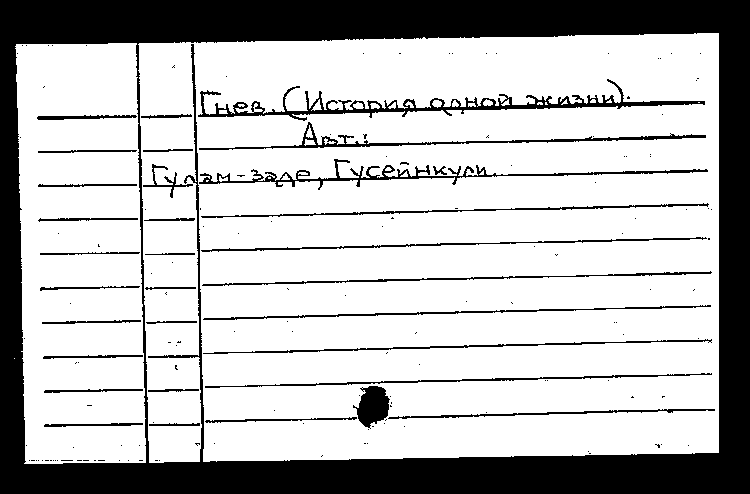 Гнев. (История одной жизни).
Авт.:
Гулам-заде, Гусейнкули.